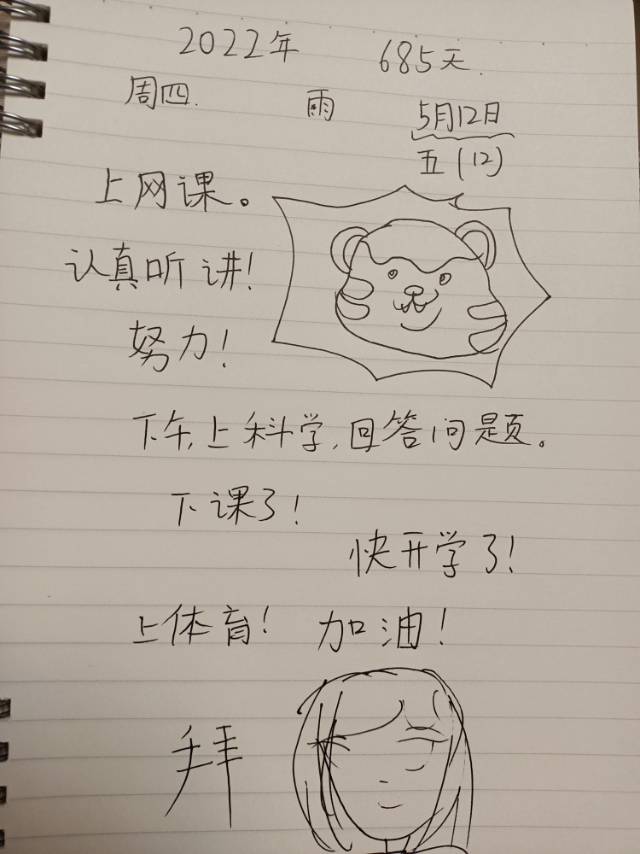 2022年 685天.
周四. 雨 5月12日
五(12)
上网课。
认真听讲!
努力!
下午,上科学,回答问题。
下课了!
快开学了!
上体育! 加油!
拜